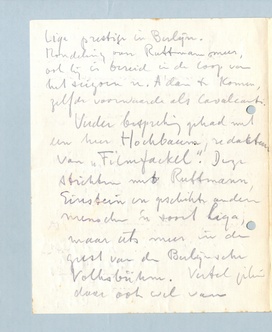 Liga prestige in Berlijn.
Mondeling van Ruttman over,
ook hij is bereid in de loop van
het seizoen n. A'dam te komen,
zelfde voorwaarde als Cavalcanti.
Verder bespreking gehad met
een heer Hochbaum, redakteur
van "Filmfackel". Deze
stichten met Ruttmann,
Einstein en geschikte andere
menschen 'n soort liga,
maar iets meer in de
geest van de Berlijnsche
Volksbühne. Vertel
daar ook wel van